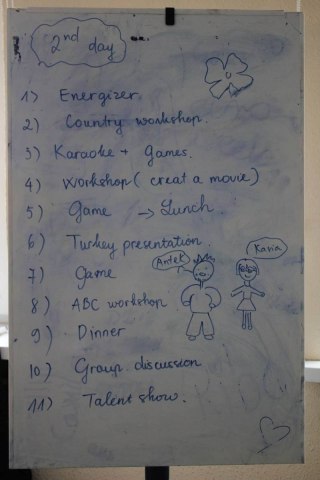 2nd day
1) Energizer.
2) Country workshop.
3) Karaoke + Games.
4) Workshop (creat a movie)
5) Game → Lunch.
6) Turkey presentation.
Antek
Kasia
7) Game
8) ABC workshop
9) Dinner
10) Group discussion
11) Talent show.